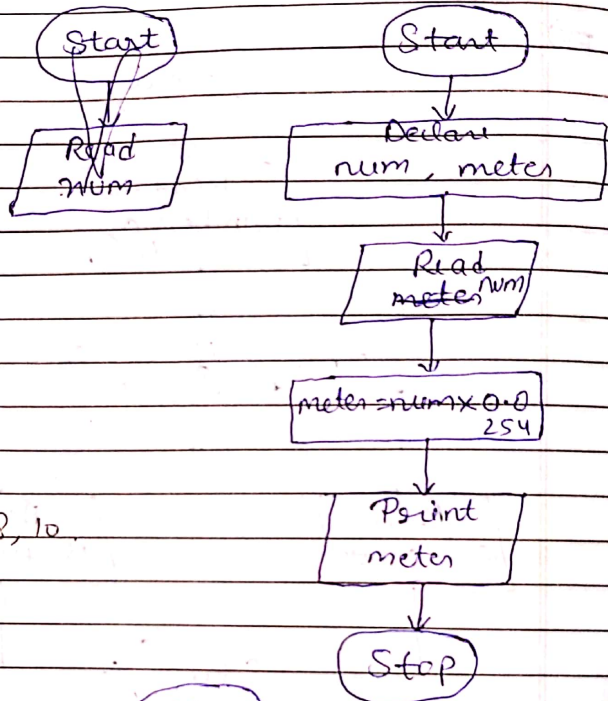 Start
Read
Num
Start
Declare
num, meter
Read
meter num
meter = num x 0.0
254
8, 10.
Print
meter
Stop